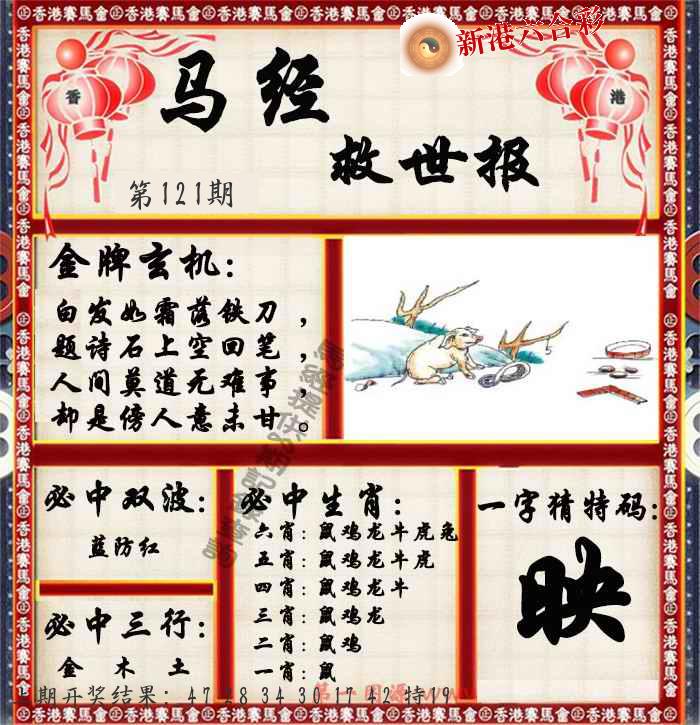 新港六合彩
香港
马经
救世报
第121期
金牌玄机：
白发如霜落铁刀，
题诗石上空回笔，
人间莫道死难事，
却是傍人意未甘。
必中双波：
蓝防红
必中三行：
金 木 土
必中生肖：
六肖：鼠鸡龙牛虎兔
五肖：鼠鸡龙牛虎
四肖：鼠鸡龙牛
三肖：鼠鸡龙
二肖：鼠鸡
一肖：鼠
一字猜特码：
映
期开奖结果：47 28 34 30 17 42 特19
香港賽馬會